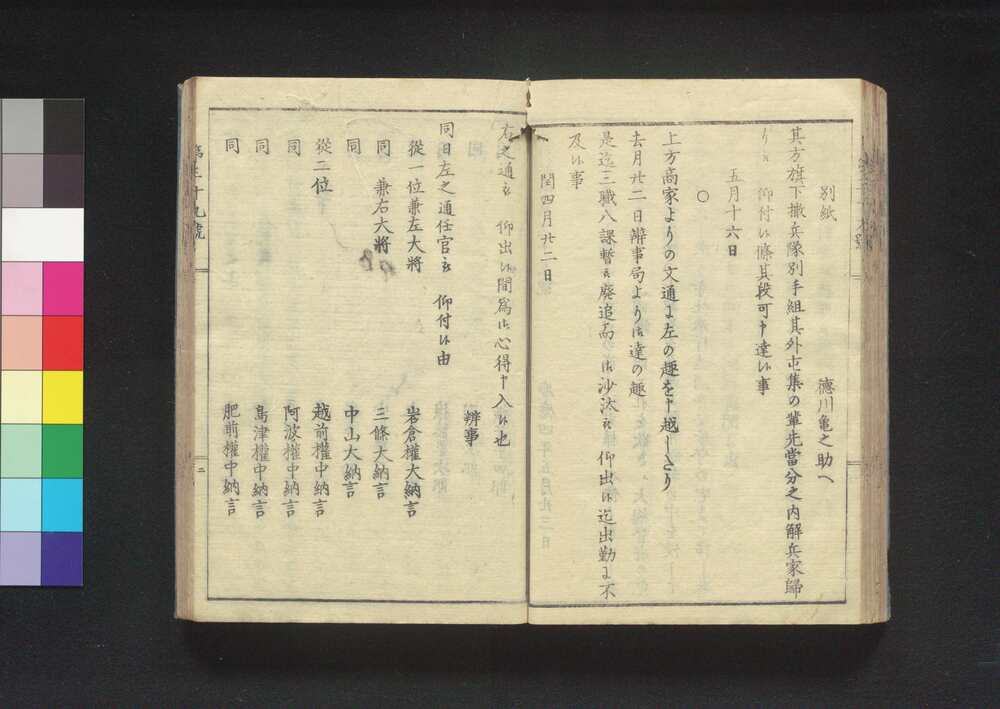 別紙
徳川亀之助へ
其方旗下撤兵隊別手組其外屯集の輩先當分之内解兵家歸
り被 仰付候條其段可申達候事
五月十六日
○
上方商家よりの文通に左の趣を申越したり
去月廿二日辨事局より御達の趣
是迄三職八課暫被廃追而御沙汰被 仰出候迄出勤に不
及候事
閏四月廿二日
右之通被 仰出候間為御心得申入候也
辨事
同日左之通任官被 仰付候由
從一位兼左大將 岩倉權大納言
同 兼右大將 三條大納言
同 中山大納言
從二位 越前權中納言
同 阿波權中納言
同 島津權中納言
同 肥前權中納言
第三十九號
二